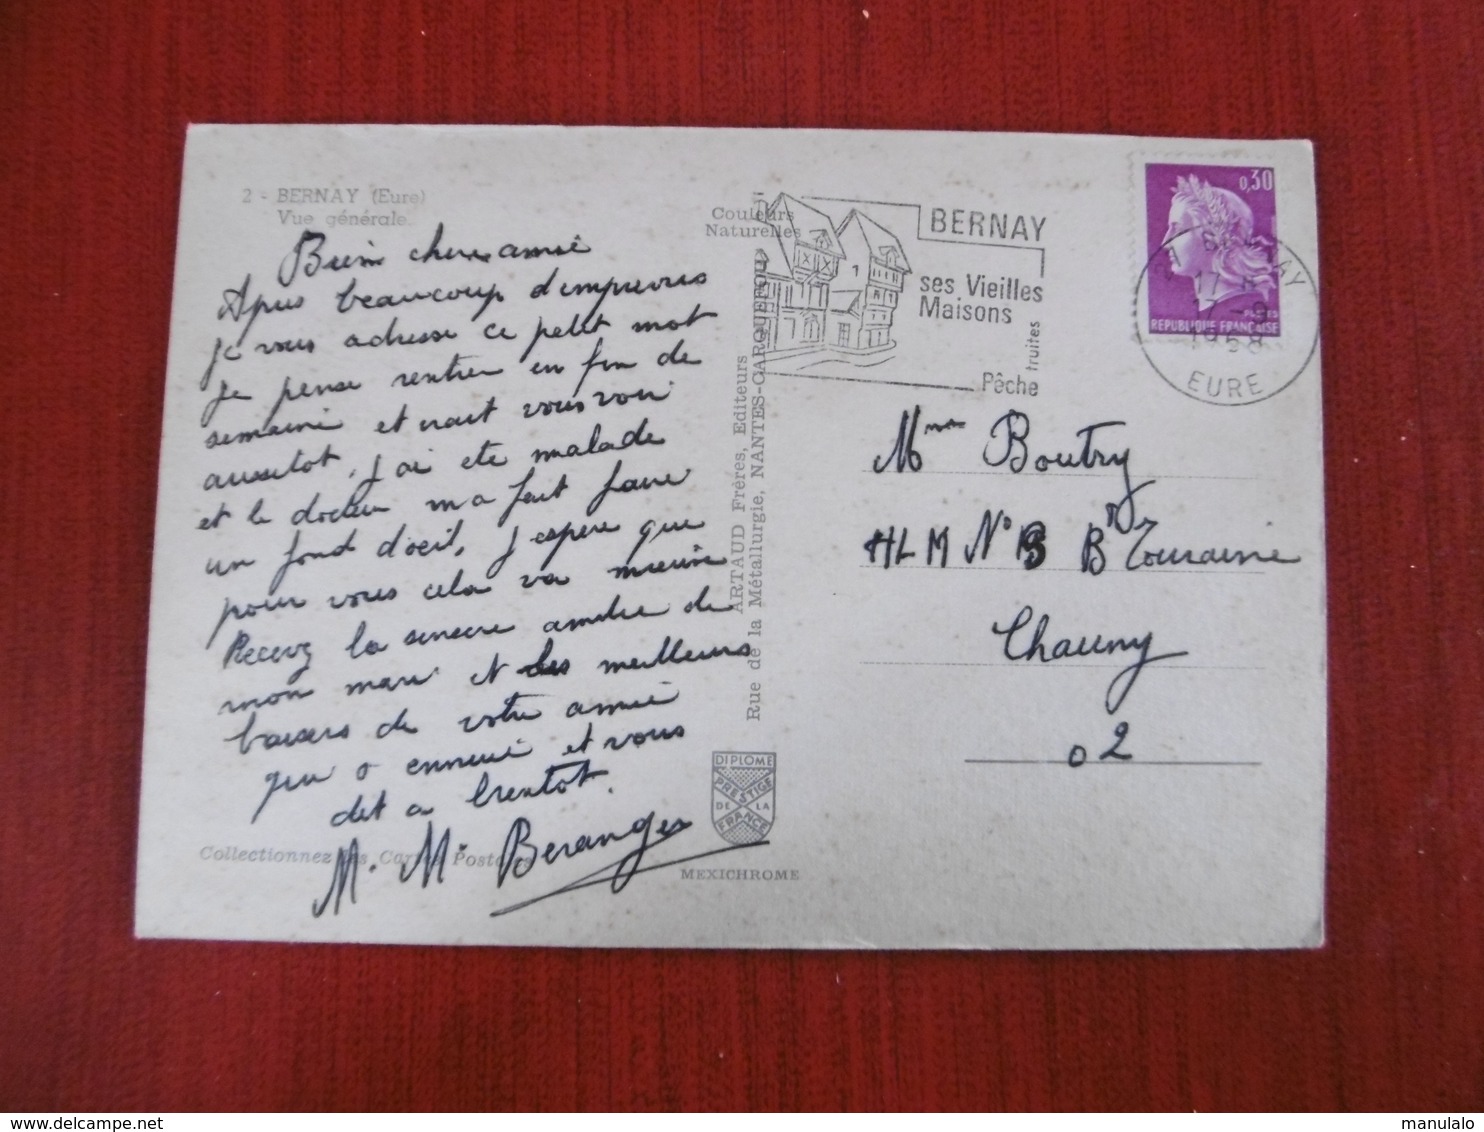 2 - BERNAY (Eure)
Vue générale
Bien chere amie
Apres beaucoup d'imprevres
je vous adresse ce petit mot
je pense rentrer en fin de
semaine et irait vous voir
aussitot, j'ai ete malade
et le docteur m'a fait faire
un fond d'oeil, J'espere que
pour vous cela va mieux
Recevez la sincere amitie de
mon mari et les meilleurs
baisers de votre amie
qui s ennuie et vous
dit a bientot.
M. Me Beranger
Collectionnez les Cartes Postales
Couleurs
Naturelles
ARTAUD Frères, Editeurs
Rue de la Métallurgie, NANTES-CARQUEFOU
DIPLOME
PRESTIGE
DE LA
FRANCE
MEXICHROME
BERNAY
ses Vieilles
Maisons
Pêche truites
0,30
REPUBLIQUE FRANÇAISE
BERNAY
17 H
17 - 9
1968
EURE
Mme Boutry
HLM N° B Bd Touraine
Chauny
02
manulalo